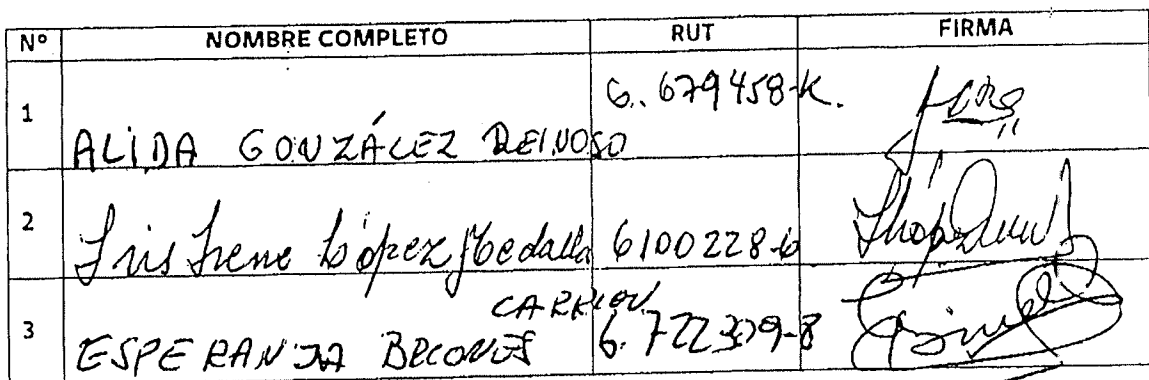 Nº NOMBRE COMPLETO RUT FIRMA
1 ALIDA GONZÁLEZ REINOSO 6.679458-K.
2 Iris Irene López Medalla 6100228-6
CARRION
3 ESPERANZA BRIONES 6.722309-8